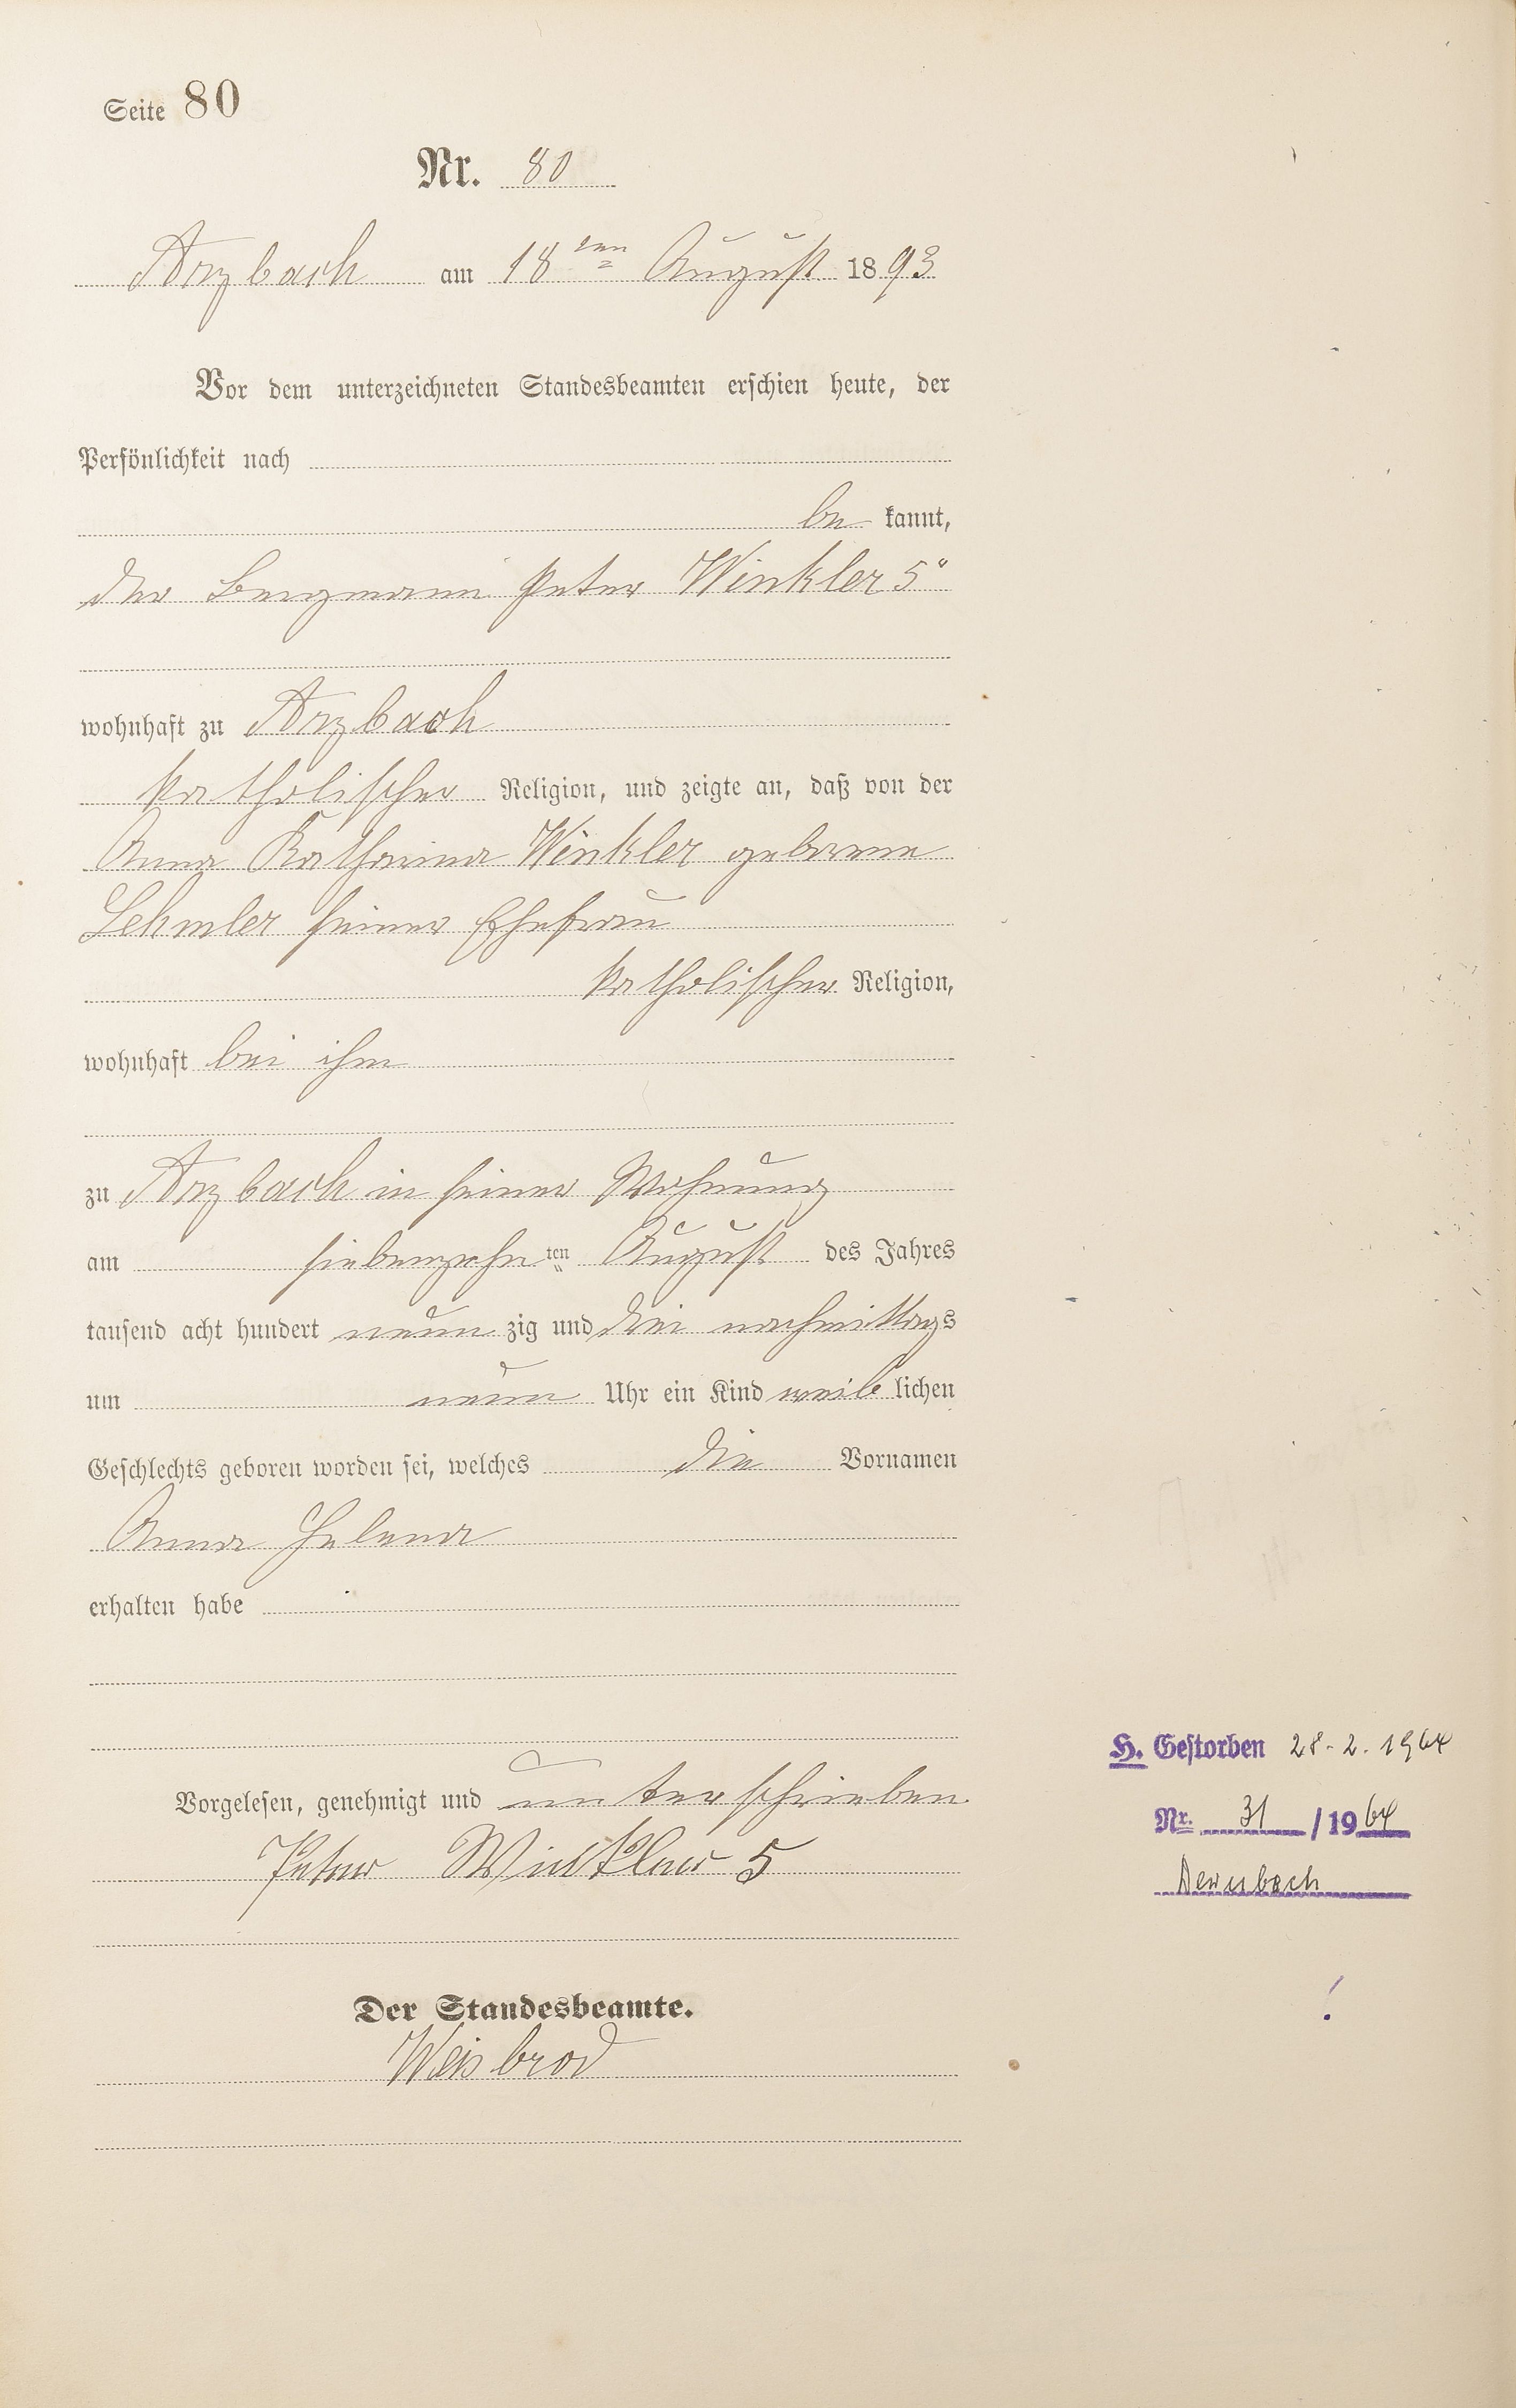 Seite 80
Nr. 80
Arzbach am 18ten August 1893
Vor dem unterzeichneten Standesbeamten erschien heute, der
Persönlichkeit nach
be kannt,
der Bergmann Peter Winkler 5"
wohnhaft zu Arzbach
katholischer Religion, und zeigte an, daß von der
Anna Katharina Winkler geborene
Lehmler seiner Ehefrau
katholischer Religion,
wohnhaft bei ihm
zu Arzbach in seiner Wohnung
am siebenzehnten August des Jahres
tausend acht hundert neun zig und drei nachmittags
um neun Uhr ein Kind weiblichen
Geschlechts geboren worden sei, welches die Vornamen
Anna Helena
erhalten habe
Vorgelesen, genehmigt und unterschrieben
Peter Winkler 5
Der Standesbeamte.
Weisbrod
H. Gestorben 28.2.1964
Nr. 31 / 1964
Dernbach